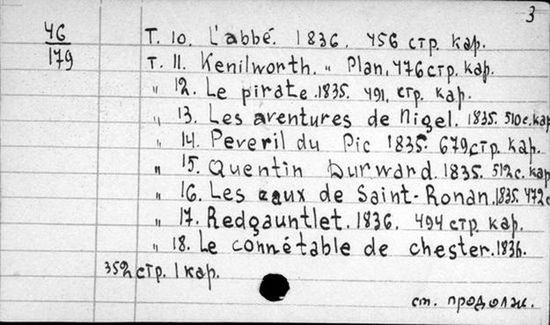 3
46
179
Т. 10. L'abbé. 1836. 456 стр. кар.
т. 11. Kenilworth. „ Plan, 476 стр. кар.
„ 12. Le pirate. 1835. 491. стр. кар.
„ 13. Les aventures de Nigel. 1835. 510 с. кар
„ 14. Peveril du Pic 1835. 679 стр. кар.
„ 15. Quentin Durward. 1835. 512 с. кар
„ 16. Les eaux de Saint-Ronan. 1835. 472 с
„ 17. Redgauntlet. 1836. 494 стр. кар.
„ 18. Le connétable de chester. 1836.
352 стр. 1 кар.
см. продолж.